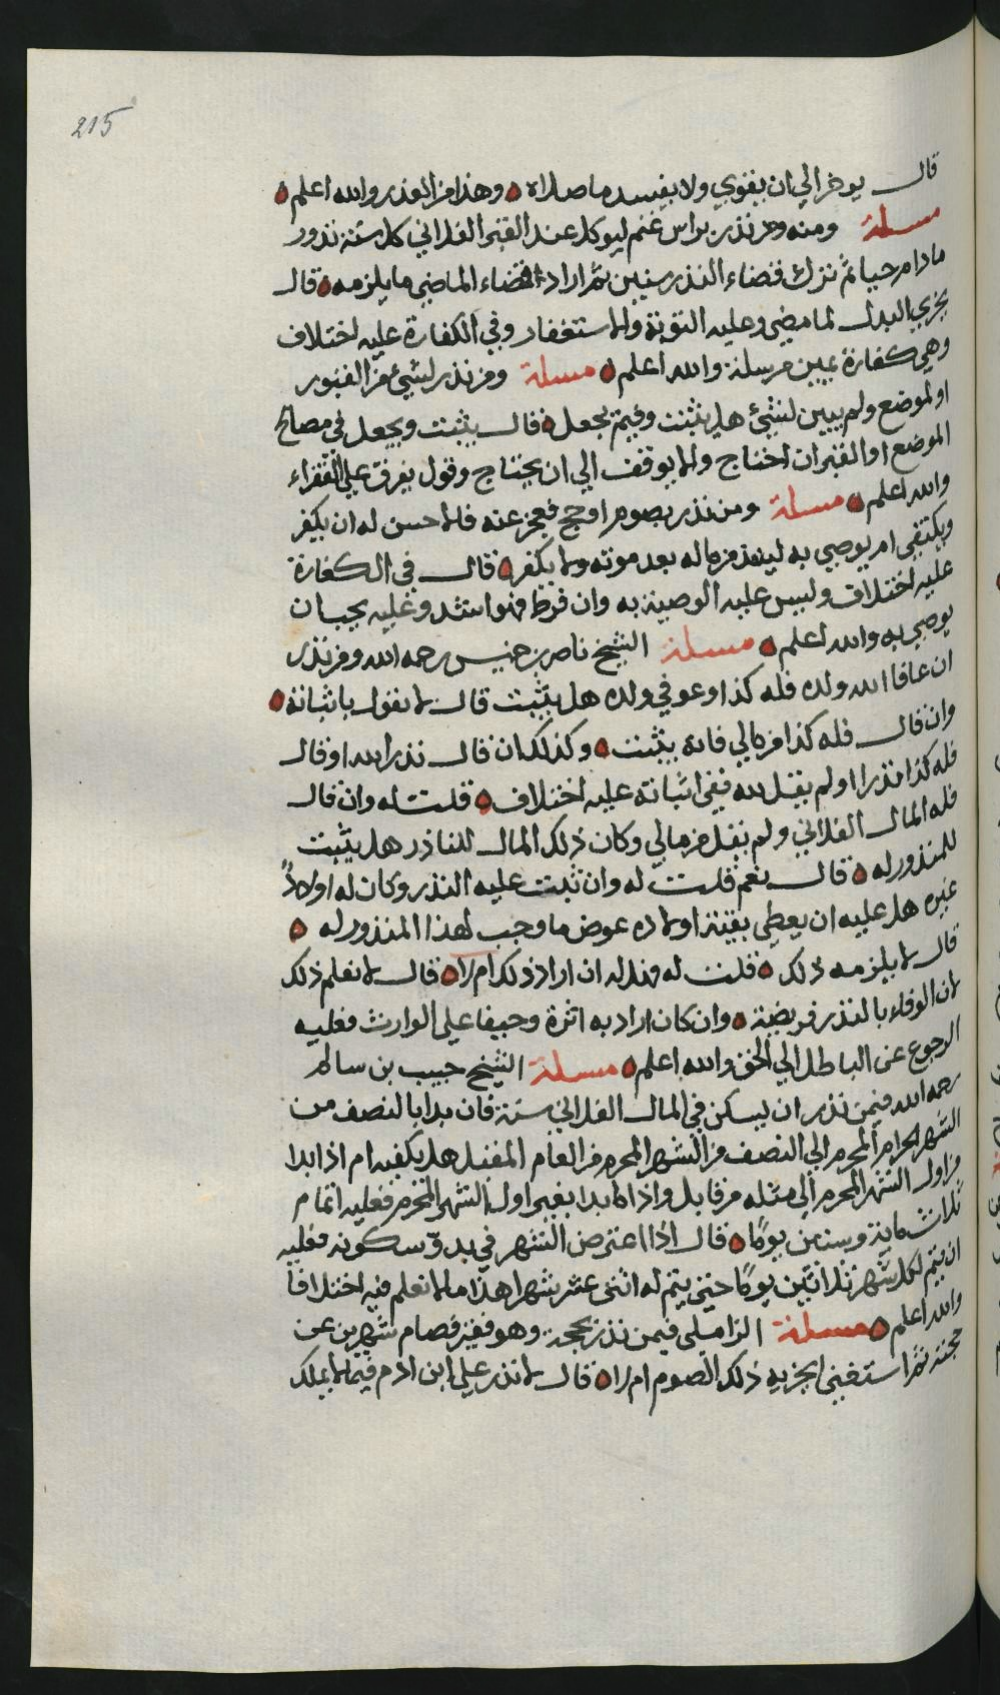 215
قال يوخر الي ان يقوي ولا يفسد ما صلاه ه وهذا من العذر والله اعلم ه
مسلة ومنه ومن نذر براس غنم ليوكل عند القبر الفلاني كل سنة نذور
مادام حيا ثم ترك قضاء النذر سنين ثم اراد قضاء الماضي ما يلزمه ه قال
يجزي البدل لما مضي وعليه التوبة والاستغفار وفي الكفارة عليه اختلاف
وهي كفارة يمين مرسلة والله اعلم ه مسلة ومن نذر لشيء من القبور
او لموضع ولم يبين لشيء هل يثبت وفيم يجعل ه قال يثبت ويجعل في مصالح
الموضع او القبر ان احتاج والا يوقف الي ان يحتاج وقول يفرق علي الفقراء
والله اعلم ه مسلة ومن نذر بصوم او حج فعجز عنه فالاحسن له ان يكفر
ويكتفي ام يوصي به لينفذ من ماله بعد موته ولا يكفر ه قال في الكفارة
عليه اختلاف وليس عليه الوصية به وان فرط فهو اشد وعليه يجب ان
يوصي به والله اعلم ه مسلة الشيخ ناصر بن خميس رحمه الله ومن نذر
ان عافا الله ولده فله كذا وعوفي ولده هل يثبت قال لا نقول باثباته ه
وان قال فله كذا من مالي فانه يثبت ه وكذلك ان قال نذر الله او قال
فله كذا نذرا او لم يقل لله ففي اثباته عليه اختلاف ه قلت له وان قال
فله المال الفلاني ولم يقل من مالي وكان ذلك المال للناذر هل يثبت
للمنذور له ه قال نعم قلت له وان ثبت عليه النذر وكان له اولادً
غيره هل عليه ان يعطي بقية اولاده عوض ما وجب لهذا المنذور له ه
قال لا يلزمه ذلك ه قلت له وهل له ان اراد ذلك ام لا ه قال لا نعلم ذلك
لان الوفاء بالنذر فريضة ه وان كان اراد به اثرة وحيفا علي الوارث فعليه
الرجوع عن الباطل الي الحق والله اعلم ه مسلة الشيخ حبيب بن سالم
رحمه الله فيمن نذر ان يسكن في المال الفلاني سنة فان بدا بالنصف من
الشهر الحرام المحرم الي النصف من الشهر المحرم من العام المقبل هل يكفيه ام اذا بدا
من اول الشهر المحرم الي مثله من قابل واذا لا بدا بغير اول الشهر المحرم فعليه اتمام
ثلاث ماية وستين يومًا ه قال اذا اعترض الشهر في بدوّ سكونه فعليه
ان يتم لكل شهر ثلاثين يومًا حتي يتم له اثني عشر شهرا هذا ما لا نعلم فيه اختلافا
والله اعلم ه مسلة الزاملي فيمن نذر بحجة وهو فقير فصام شهرين عن
حجته ثم استغني ايجزيه ذلك الصوم ام لا ه قال لا نذر علي ابن ادم فيما لا يملك